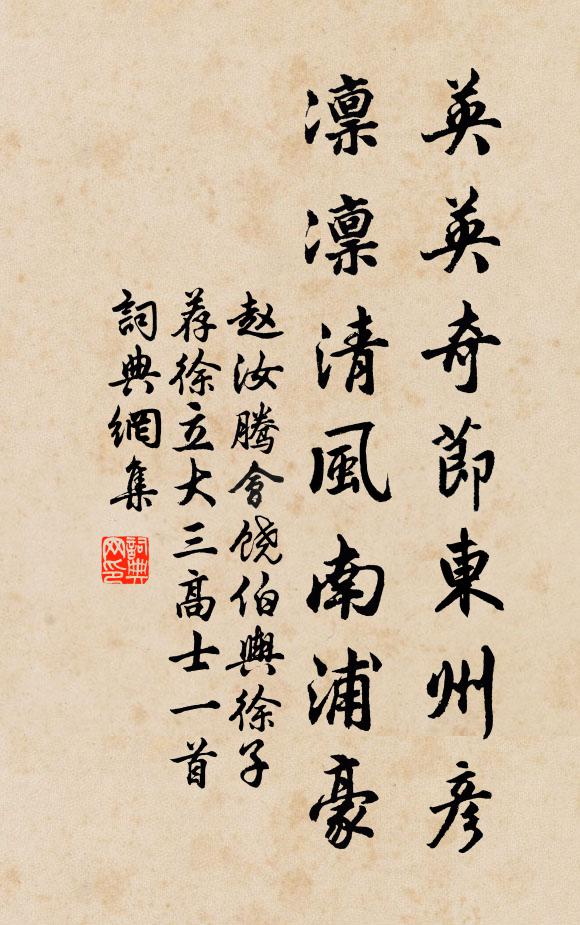 英英奇節東州彦
凛凛清風南浦豪
赵汝腾會饶伯與徐子
荐徐立大三高士一首
詞典網集
詞典
网印